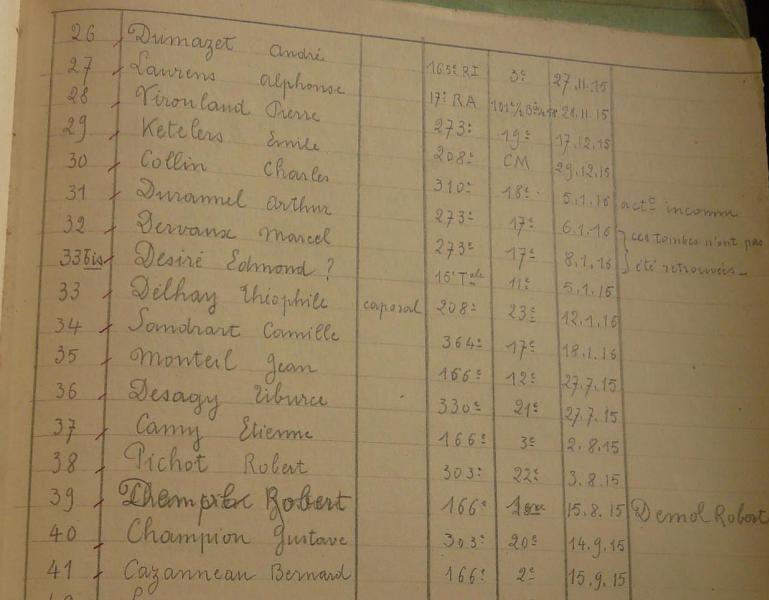 26 Dumazet André 165e RI 3e 27.11.15
27 Laurens Alphonse 17e RA 28.11.15
28 Virouland Pierre 273e 19e 17.12.15
29 Ketelers Emile 208e CM 29.12.15
30 Collin Charles 310e 18e 5.1.16 inconnu
31 Duramel Arthur 273e 17e 6.1.16 ces tombes n'ont pas
32 Dervaux Marcel 273e 17e 8.1.16 été retrouvées_
33bis Desiré Edmond ? 16e Tale 11e 5.1.15
33 Délhay Théophile caporal 208e 23e 12.1.16
34 Sandrart Camille 364e 17e 18.1.16
35 Monteil Jean 166e 12e 27.7.15
36 Desagy Tiburce 330e 21e 27.7.15
37 Camy Etienne 166e 3e 2.8.15
38 Pichot Robert 303e 22e 3.8.15
39 Robert 166e 1ère 15.8.15 Demol Robert
40 Champion Gustave 303e 20e 14.9.15
41 Cazanneau Bernard 166e 2e 15.9.15